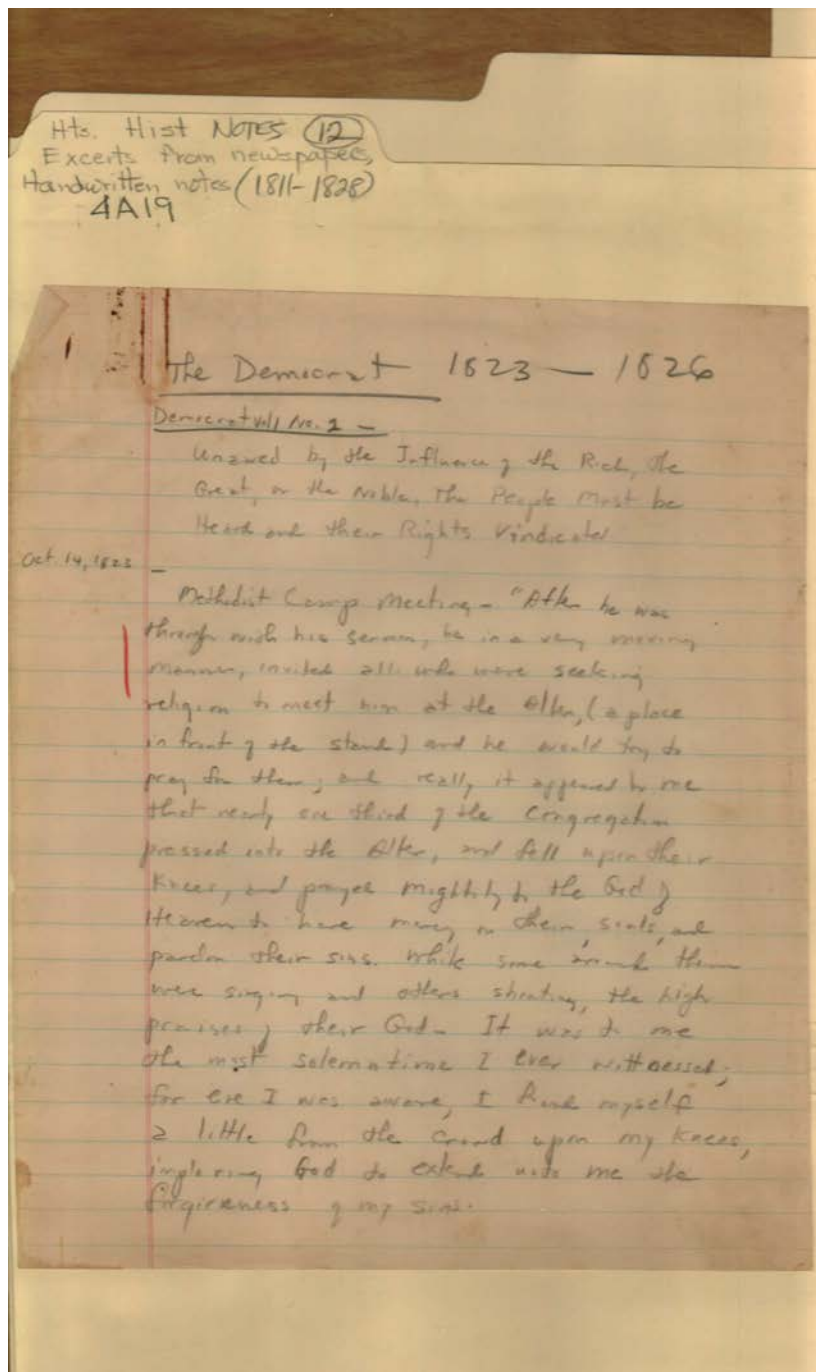 Hts. Hist NOTES 12
Excerts from newspapers,
Handwritten notes (1811-1828)
4A19
1
The Democrat 1823 — 1826
Democrat Vol 1 No. 1 —
Unawed by the Influence of the Rich, the
Great, or the Noble, The People Must be
Heard and their Rights Vindicated
Oct. 14, 1823 —
Methodist Camp Meeting - "After he was
through with his sermon, he in a very moving
manner, invited all who were seeking
religion to meet him at the Alter, (a place
in front of the stand) and he would try to
pray for them; and really it appeared to me
that nearly one third of the Congregation
pressed into the Alter, and fell upon their
Knees, and prayed mightily to the God of
Heaven to have mercy on their souls, and
pardon their sins. While some around them
were singing and others shouting, the high
praises of their God. It was to me
the most solemn time I ever wittnessed;
for ere I was aware, I found myself
a little from the crowd upon my Knees,
imploring God to extend unto me the
forgiveness of my sins.